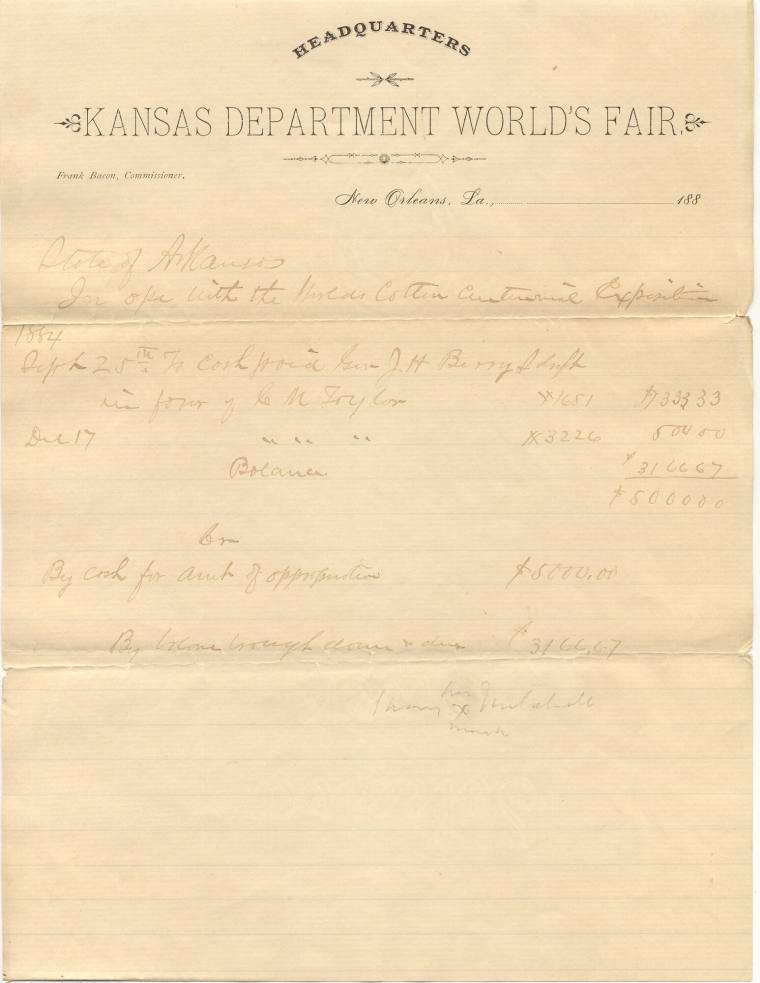 HEADQUARTERS
KANSAS DEPARTMENT WORLD'S FAIR.
Frank Bacon, Commissioner.
New Orleans, La., 188
State of Arkansas
In with the Worlds Cotton Centennial Exposition
1884
Sept 25th To cash paid Gov J H Berry draft
in favor of C M Taylor *1651 $733 33
Dec 17 " " " *3226 500 00
Balance $3166 67
$5000 00
Cr
By cash for amt of appropriation $5000.00
By balance brought down & due $3166.67
his
x
mark